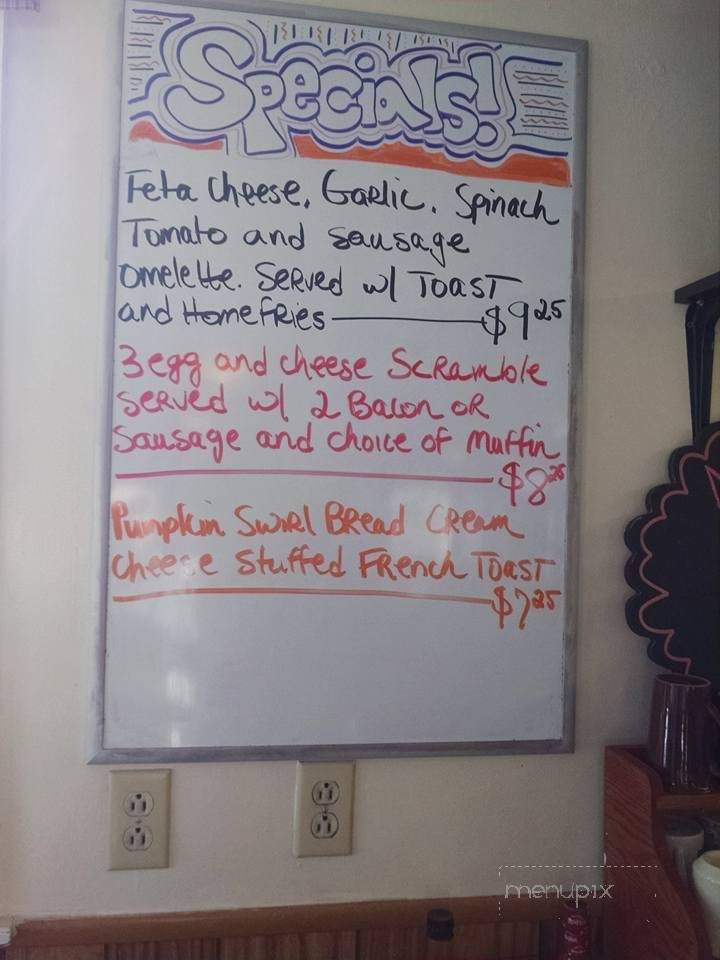 Specials!
Feta Cheese, Garlic, Spinach
Tomato and sausage
omelette. Served w/ Toast
and Homefries $9.25
3 egg and cheese Scramble
served w/ 2 Bacon or
Sausage and choice of muffin
$8.25
Pumpkin Swirl Bread Cream
Cheese Stuffed French Toast
$7.25
menupix